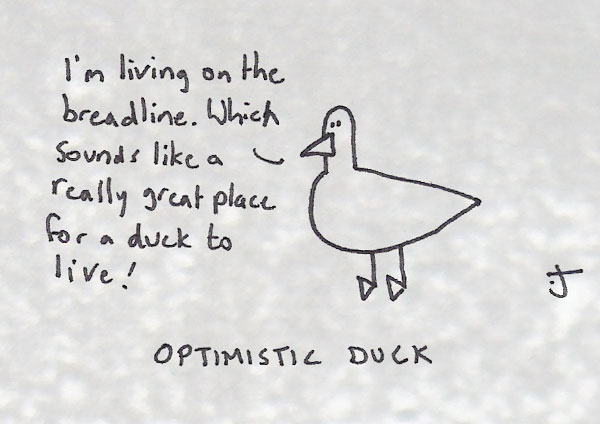 I'm living on the
breadline. Which
sounds like a
really great place
for a duck to
live!
OPTIMISTIC DUCK